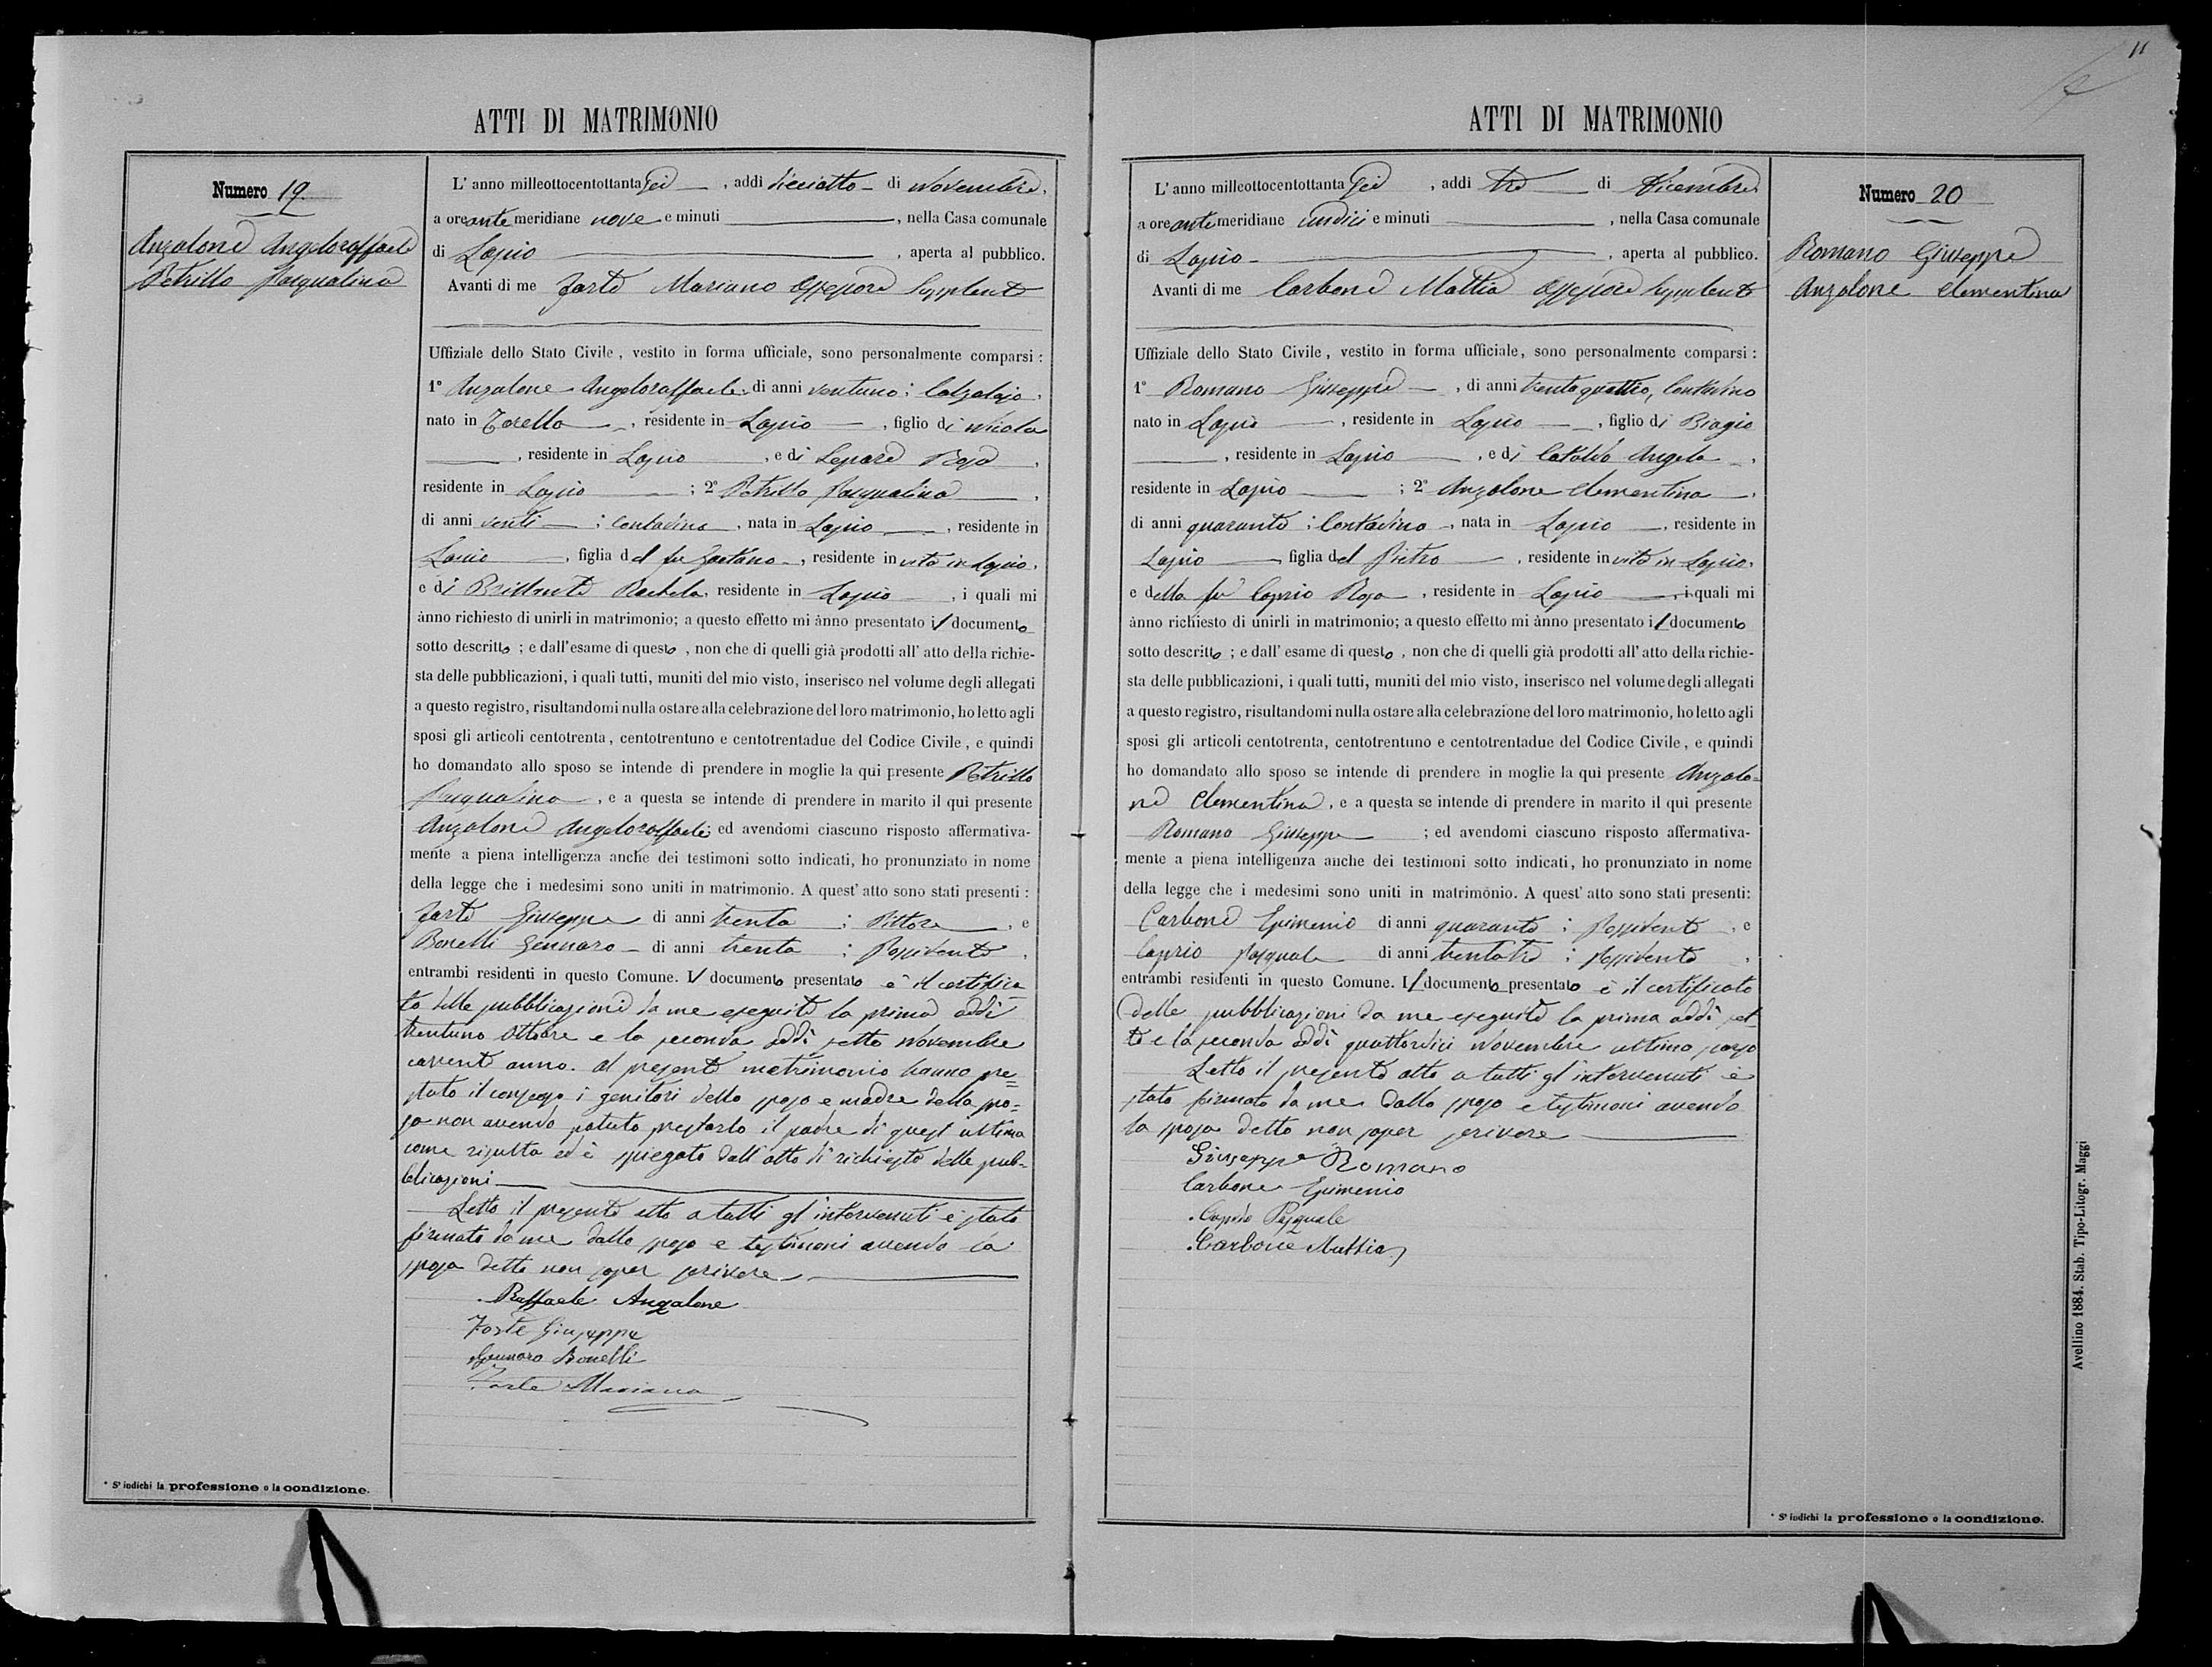 ATTI DI MATRIMONIO
Numero 19.
Anzalone Angeloraffaele
Petrillo Pasqualina
L' anno milleottocentottanta sei , addì dieciotto di Novembre,
a ore ante meridiane nove e minuti , nella Casa comunale
di Lapio , aperta al pubblico.
Avanti di me Forte Mariano Assessore Supplente
Uffiziale dello Stato Civile, vestito in forma ufficiale, sono personalmente comparsi:
1° Anzalone Angeloraffaele, di anni ventuno; Calzolajo,
nato in Torella , residente in Lapio , figlio di Nicola
, residente in Lapio , e di Lepore Rosa ,
residente in Lapio ; 2° Petrillo Pasqualina ,
di anni venti ; Contadina , nata in Lapio , residente in
Lapio , figlia del fu Gaetano , residente in vita in Lapio,
e di Brillante Rachela, residente in Lapio , i quali mi
ànno richiesto di unirli in matrimonio; a questo effetto mi ànno presentato il documento
sotto descritto ; e dall'esame di questo , non che di quelli già prodotti all' atto della richie-
sta delle pubblicazioni, i quali tutti, muniti del mio visto, inserisco nel volume degli allegati
a questo registro, risultandomi nulla ostare alla celebrazione del loro matrimonio, ho letto agli
sposi gli articoli centotrenta, centotrentuno e centotrentadue del Codice Civile, e quindi
ho domandato allo sposo se intende di prendere in moglie la qui presente Petrillo
Pasqualina , e a questa se intende di prendere in marito il qui presente
Anzalone Angeloraffaele; ed avendomi ciascuno risposto affermativa-
mente a piena intelligenza anche dei testimoni sotto indicati, ho pronunziato in nome
della legge che i medesimi sono uniti in matrimonio. A quest' atto sono stati presenti:
Forte Giuseppe di anni trenta ; Pittore , e
Bonelli Gennaro di anni trenta ; Possidente ,
entrambi residenti in questo Comune. Il documento presentato è il certifica
to delle pubblicazioni da me eseguite la prima addì
trentuno Ottobre e la seconda addì sette Novembre
corrente anno. Al presente matrimonio hanno pre=
stato il consenso i genitori dello sposo e madre della spo=
sa non avendo potuto prestarlo il padre di quest'ultima
come risulta ed è spiegato dall'atto di richiesta delle pub-
blicazioni
Letto il presente atto a tutti gl'intervenuti è stato
firmato da me dallo sposo e testimoni avendo la
sposa detto non saper scrivere
Raffaele Anzalone
Forte Giuseppe
Gennaro Bonelli
Forte Mariano
* S' indichi la professione o la condizione.
11
ATTI DI MATRIMONIO
Numero 20
Romano Giuseppe
Anzalone Clementina
L' anno milleottocentottanta sei , addì tre di Dicembre,
a ore ante meridiane undici e minuti , nella Casa comunale
di Lapio , aperta al pubblico.
Avanti di me Carbone Mattia Assessore Supplente
Uffiziale dello Stato Civile, vestito in forma ufficiale, sono personalmente comparsi:
1° Romano Giuseppe , di anni trentaquattro, Contadino
nato in Lapio , residente in Lapio , figlio di Biagio
, residente in Lapio , e di Cataldo Angela ,
residente in Lapio ; 2° Anzalone Clementina ,
di anni quaranta ; Contadina , nata in Lapio , residente in
Lapio figlia del Pietro , residente in vita in Lapio,
e della fu Caprio Rosa , residente in Lapio , i quali mi
ànno richiesto di unirli in matrimonio; a questo effetto mi ànno presentato il documento
sotto descritto ; e dall' esame di questo , non che di quelli già prodotti all' atto della richie-
sta delle pubblicazioni, i quali tutti, muniti del mio visto, inserisco nel volume degli allegati
a questo registro, risultandomi nulla ostare alla celebrazione del loro matrimonio, ho letto agli
sposi gli articoli centotrenta, centotrentuno e centotrentadue del Codice Civile, e quindi
ho domandato allo sposo se intende di prendere in moglie la qui presente Anzalo=
ne Clementina, e a questa se intende di prendere in marito il qui presente
Romano Giuseppe ; ed avendomi ciascuno risposto affermativa-
mente a piena intelligenza anche dei testimoni sotto indicati, ho pronunziato in nome
della legge che i medesimi sono uniti in matrimonio. A quest' atto sono stati presenti:
Carbone Epimenio di anni quaranta ; Possidente , e
Caprio Pasquale di anni trentatre ; Possidente ,
entrambi residenti in questo Comune. Il documento presentato è il certificato
delle pubblicazioni da me eseguite la prima addì set-
te e la seconda addì quattordici Novembre ultimo scorso
Letto il presente atto a tutti gl'intervenuti è
stato firmato da me dallo sposo e testimoni avendo
la sposa detto non saper scrivere
Giuseppe Romano
Carbone Epimenio
Caprio Pasquale
Carbone Mattia
* S' indichi la professione o la condizione.
Avellino 1884. Stab. Tipo-Litogr. Maggi